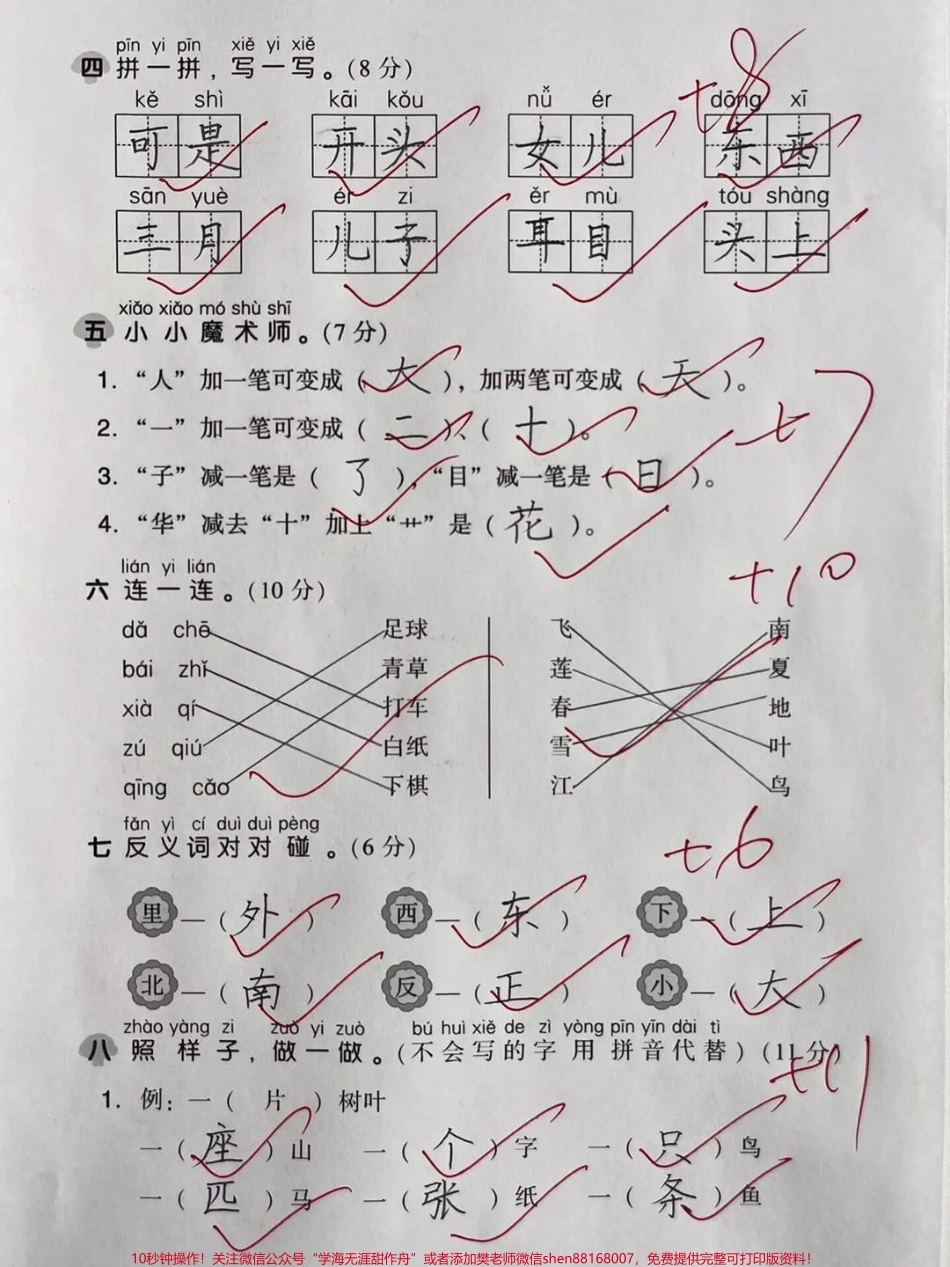 pīn yi pīn xiě yi xiě
四 拼一拼，写一写。(8分)
+8
kě shì kāi kǒu nǚ ér dōng xī
可是 开头 女儿 东西
sān yuè ér zi ěr mù tóu shàng
三月 儿子 耳目 头上
xiǎo xiǎo mó shù shī
五 小小魔术师。(7分)
1. “人”加一笔可变成（大），加两笔可变成（天）。
2. “一”加一笔可变成（二）、（十）。
3. “子”减一笔是（了），“目”减一笔是（日）。
+7
4. “华”减去“十”加上“艹”是（花）。
lián yi lián
六 连一连。(10分)
+10
dǎ chē 足球 飞 南
bái zhǐ 青草 莲 夏
xià qí 打车 春 地
zú qiú 白纸 雪 叶
qīng cǎo 下棋 江 鸟
fǎn yì cí duì duì pèng
七 反义词对对碰。(6分)
+6
里—（外） 西—（东） 下—（上）
北—（南） 反—（正） 小—（大）
zhào yàng zi zuò yi zuò bú huì xiě de zì yòng pīn yīn dài tì
八 照样子，做一做。(不会写的字用拼音代替)(11分)
+11
1. 例：一（片）树叶
一（座）山 一（个）字 一（只）鸟
一（匹）马 一（张）纸 一（条）鱼
10秒钟操作！关注微信公众号“学海无涯甜作舟”或者添加樊老师微信shen88168007，免费提供完整可打印版资料！